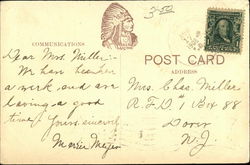 3.50
COMMUNICATIONS
POST CARD
ADDRESS
Dear Mrs. Miller:-
We have been here
a week and are
having a good
time. Yours sincerely
Mrs. Chas. Miller
R.F.D. #1 Box 88
Dover
N.J.